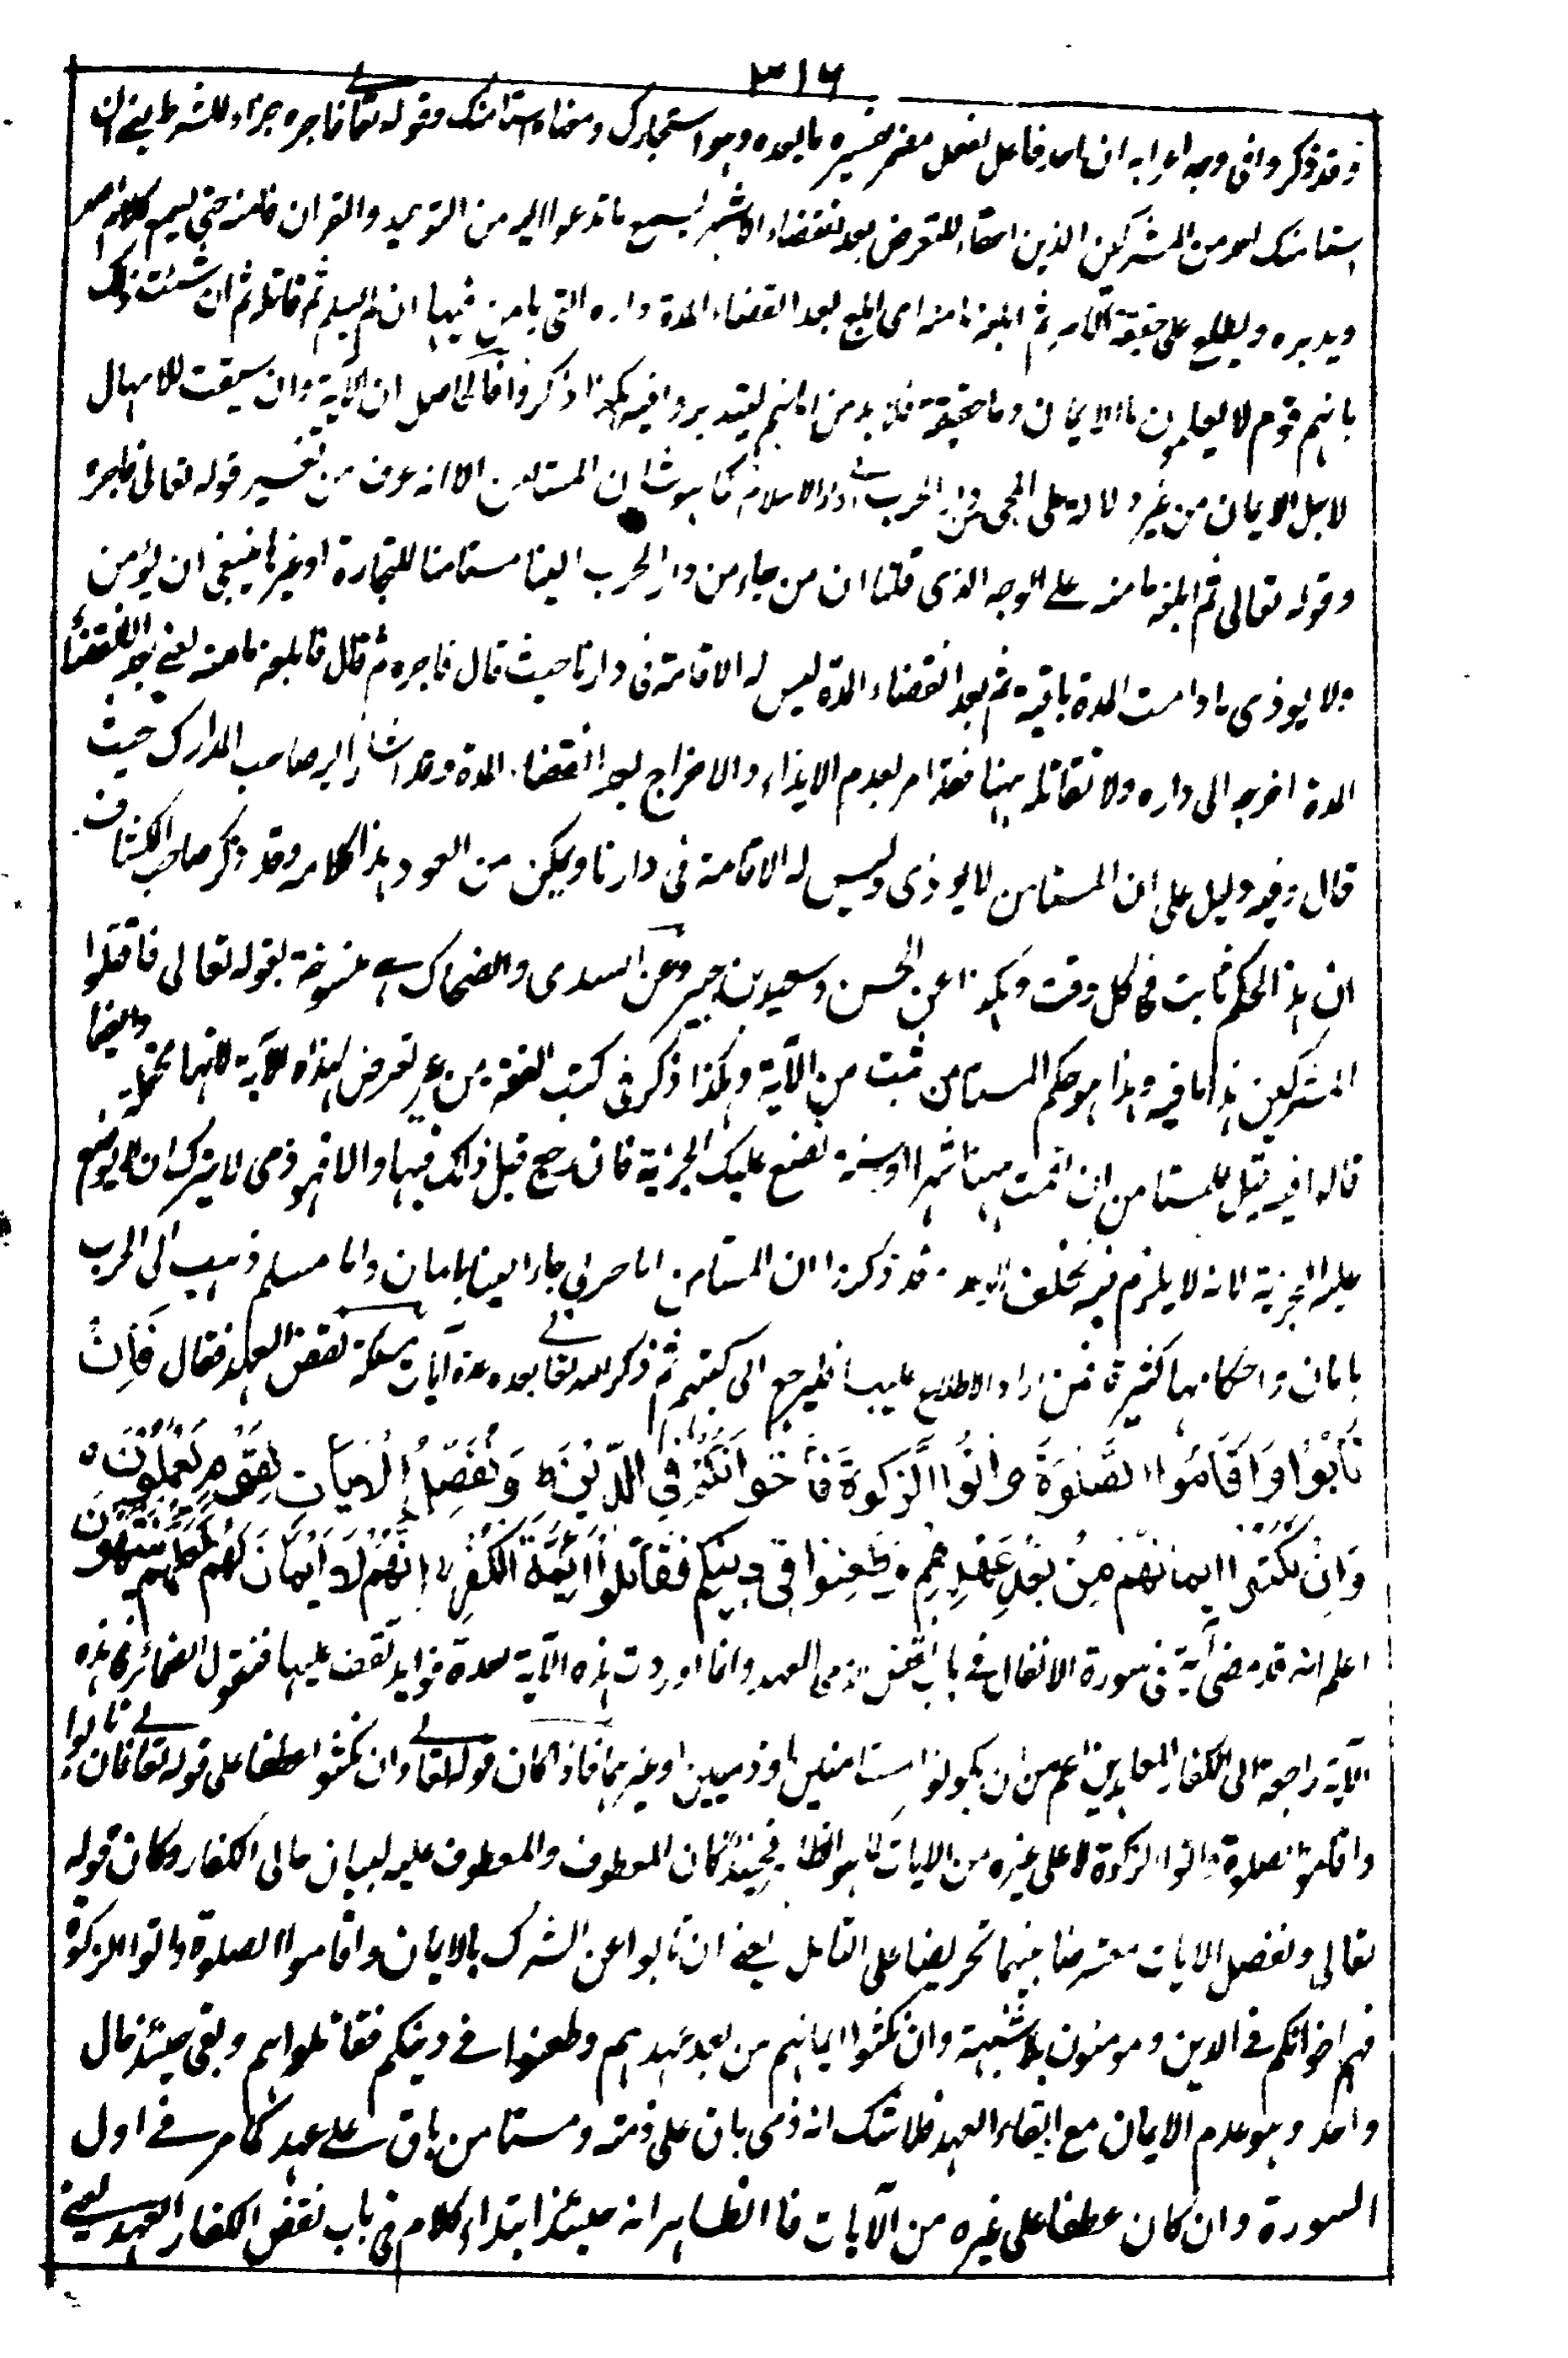 ٣١٦
وقد ذكروا فى وجه اعرابه ان احد فاعل لفعل مضمر يفسره ما بعده وهو استجارك ومعناه استامنك وقوله تعالى فاجره جزاء للشرط يعنى ان
استامنك احد من المشركين الذين امتناء للتعرض بعد انقضاء الاشهر ليسمع ما تدعوا اليه من التوحيد والقران فامنه حتى يسمع كلام الله
ويدبره ويطلع على حقيقة الامر ثم ابلغه مامنه اى ابلغ بعد انقضاء المدة داره التى يامن فيها ان لم يسلم ثم قاتله ثم ان شئت ذلك
بانهم قوم لا يعلمون ما الايمان وما حقيقة فلابد من امانهم ليتدبروا فيه هكذا ذكروا فالحاصل ان الآية وان سيقت للامهال
لاجل الايمان من غير دلالة على المجى من الحرب فى دار الاسلام كما هو شان المستامن الا انه عرف من تفسير قوله تعالى فاجره
وقوله تعالى ثم ابلغه مامنه على الوجه الذى قلنا ان من جاء من دار الحرب الينا مستامنا للتجارة او غيرها ينبغى ان يؤمن
ولا يوذى ما دامت المدة باقية ثم بعد انقضاء المدة ليس له الاقامة فى دارنا حيث قال فاجره ثم قال فابلغه مامنه يعنى بعد انقضاء
المدة اخرجه الى داره ولا تقاتله ههنا فهذا امر بعدم الايذاء والاخراج بعد انقضاء المدة وقد اشار اليه صاحب المدارك حيث
قال وفيه دليل على ان المستامن لا يوذى وليس له الاقامة فى دارنا ويمكن من العود هذا كلامه وقد ذكر صاحب الكشاف
ان هذا الحكم ثابت فى كل وقت وهكذا عن الحسن وسعيد بن جبير وعن السدى والضحاك هى منسوخة بقوله تعالى فاقتلوا
المشركين هذا ما فيه وهذا هو حكم المستامن ثبت من الآية وهكذا ذكر فى كتب الفقه من غير تعرض لهذه الآية لانها محتملة وايضا
قالوا فيه قيل للمستامن ان اقمت ههنا شهرا او سنة نضع عليك الجزية فان رجع قبل ذلك فبها والا فهو ذمى لا يترك ان يرجع
عليه الجزية لانه لا يلزم فيه تخلف الوعد وقد ذكروا ان المستامن اما حربى جاء الينا بامان واما مسلم ذهب الى الحرب
بامان واحكامها كثيرة فمن اراد الاطلاع عليها فليرجع الى كتبهم ثم ذكر الله تعالى بعده عدة آيات مسئلة نقض العهد فقال فَاِنْ
تَابُوْا وَاَقَامُوا الصَّلٰوةَ وَاٰتَوُا الزَّكٰوةَ فَاِخْوَانُكُمْ فِى الدِّيْنِ وَنُفَصِّلُ الْاٰيَاتِ لِقَوْمٍ يَّعْلَمُوْنَ
وَاِنْ نَّكَثُوْا اَيْمَانَهُمْ مِنْ بَعْدِ عَهْدِهِمْ وَطَعَنُوْا فِىْ دِيْنِكُمْ فَقَاتِلُوْا اَئِمَّةَ الْكُفْرِ اِنَّهُمْ لَا اَيْمَانَ لَهُمْ لَعَلَّهُمْ يَنْتَهُوْنَ
اعلم انه قد مضى آية فى سورة الانفال فى باب نقض ذمى العهد وانما اوردت هذه الآية لعدة فوايد تقف عليها فنقول الضمائر فى هذه
الآية راجعة الى الكفار المعاهدين اعم من ان يكونوا مستامنين او ذميين او غيرهما فاذا كان قوله تعالى وان نكثوا عطفا على قوله تعالى فان تابوا
واقاموا الصلوة واتوا الزكوة لا على غيره من الايات كما هو الظاهر فحينئذ كان المعطوف والمعطوف عليه لبيان حالى الكفار وكان قوله
تعالى ونفصل الايات معترضا بينهما تحريضا على التامل يعنى ان تابوا عن الشرك بالايمان واقاموا الصلوة واتوا الزكوة
فهم اخوانكم فى الدين ومومنون بلا شبهة وان نكثوا ايمانهم من بعد عهدهم وطعنوا فى دينكم فقاتلوهم وبقى حينئذ حال
واحد وهو عدم الايمان مع ابقاء العهد فلا شك انه ذمى باق على ذمته ومستامن باق على عهد كما مر فى اول
السورة وان كان عطفا على غيره من الآيات فالظاهر انه حينئذ ابتداء كلام فى باب نقض الكفار العهد يعنى